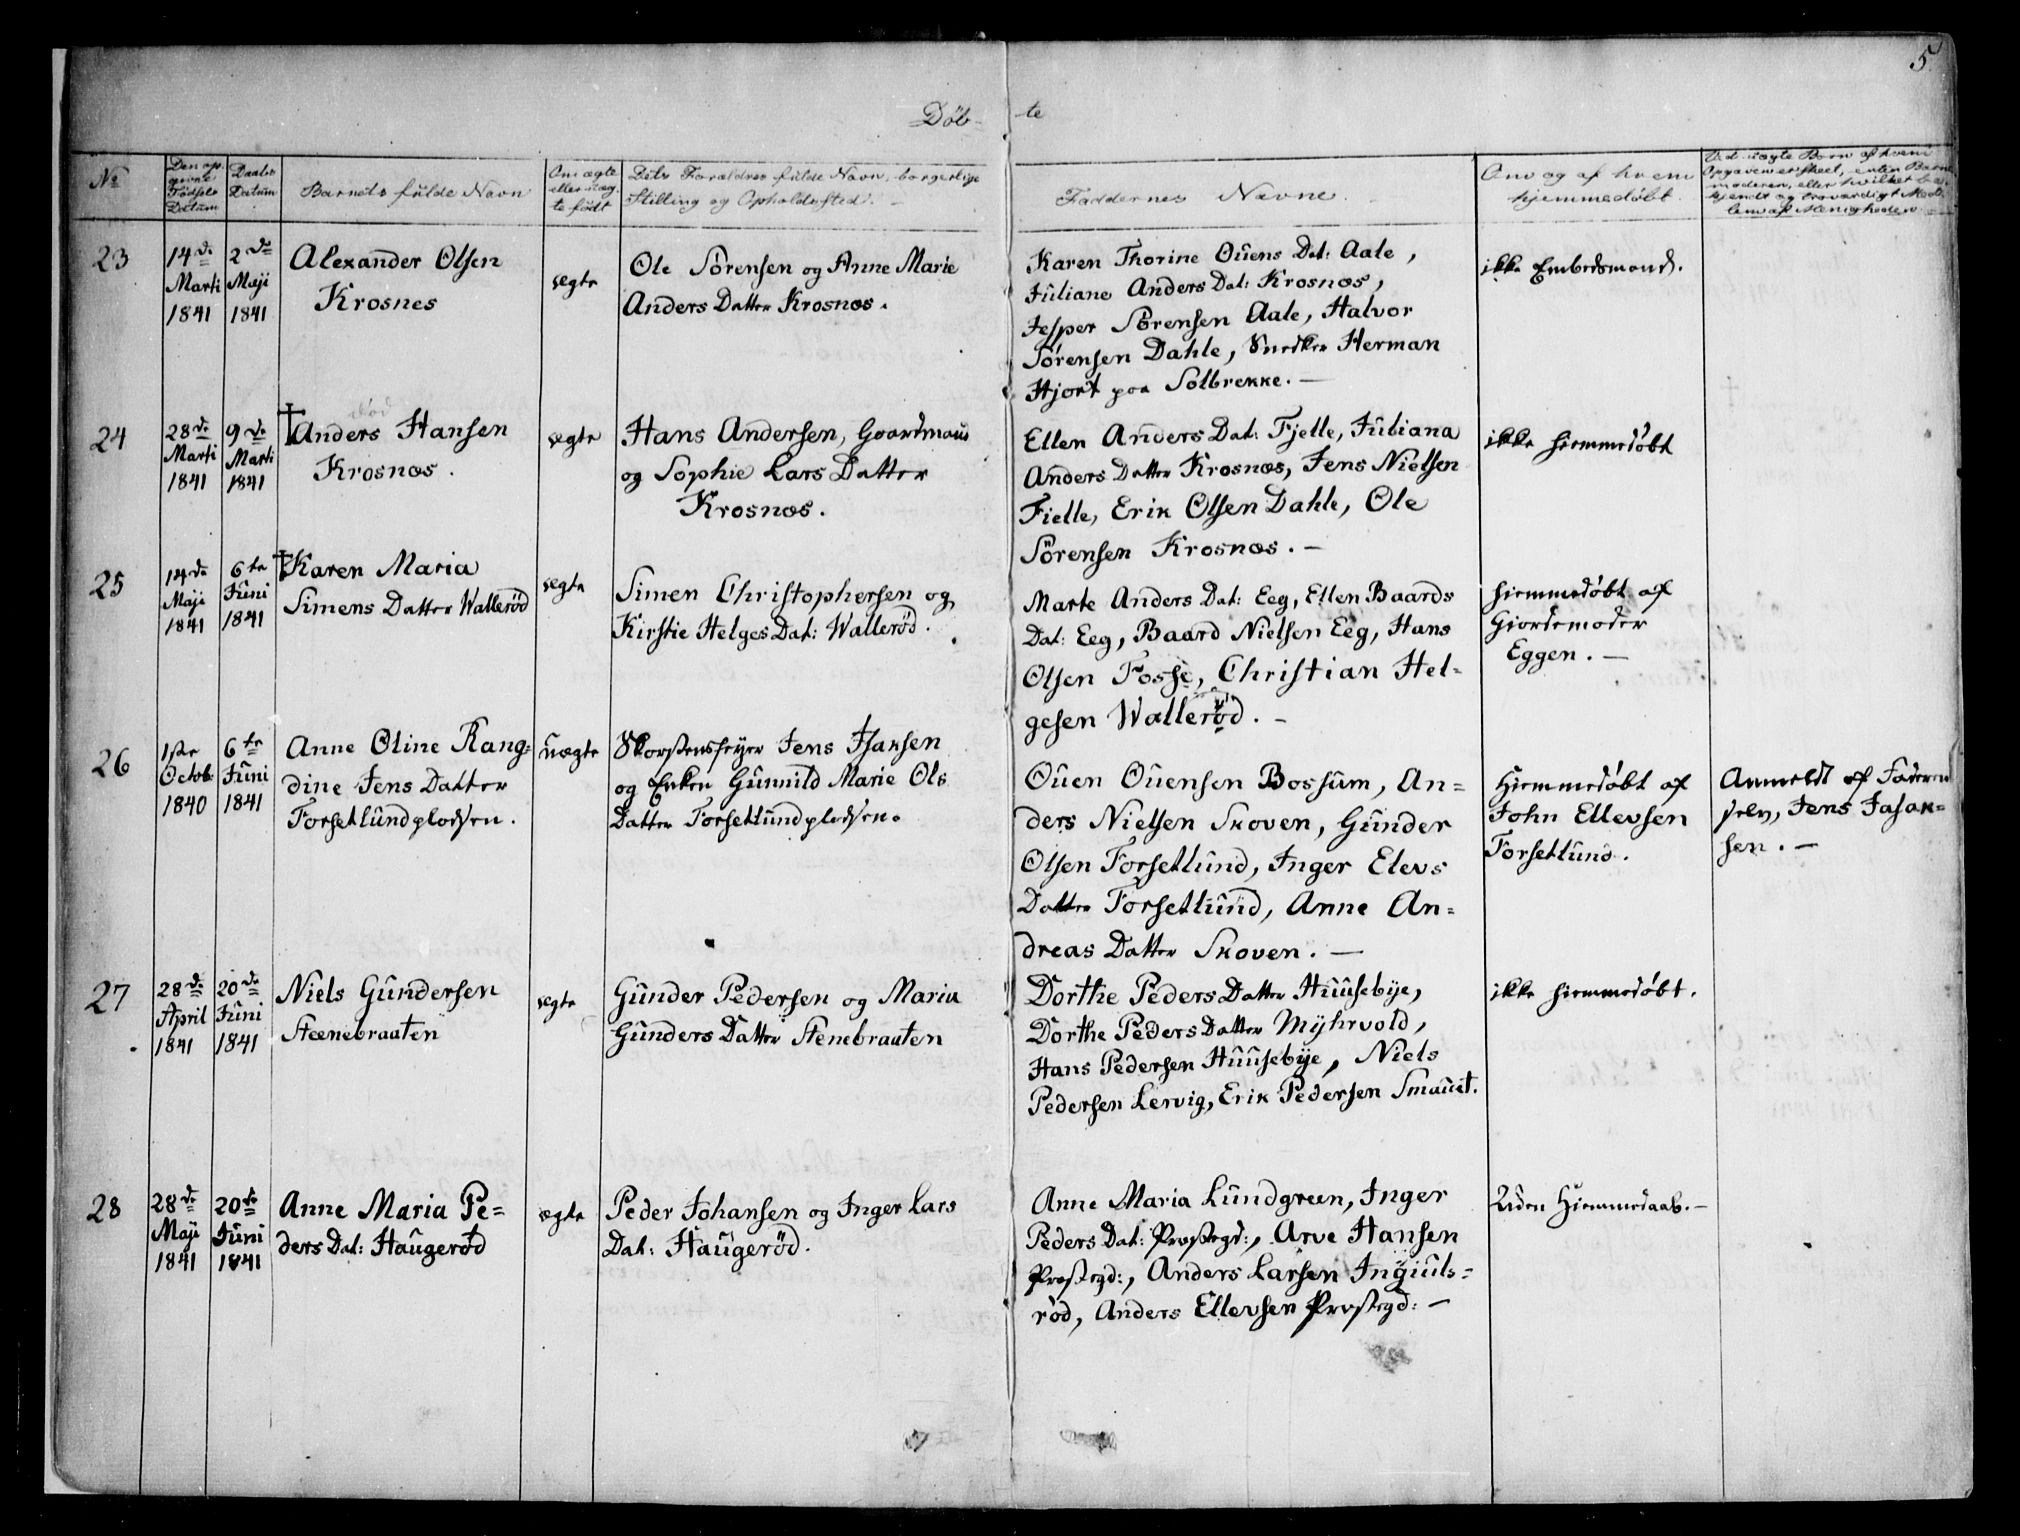 5.
Döb- te
No
Den op-
givne
Födsels
Datum
Daabs
Datum
Barnets fulde Navn
Om ægte
eller uæg-
te födt
Dets Forældres fulde Navn, borgerlige
Stilling og Opholdssted.
Faddernes Navne.
Om og af hvem
hjemmedöbt
Ved uægte Börn af hvem
Opgaven er skeet, enten Barne-
moderen, eller hvilket be-
kjendt og troværdigt Med-
lem af Menigheden
23
14de
Marti
1841
2de
Maji
1841
Alexander Olsen
Krosnes
ægte
Ole Sörensen og Anne Marie
Anders Datter Krosnæs.
Karen Thorine Ouens Dat: Aale,
Juliane Anders Dat: Krosnæs,
Jesper Sörensen Aale, Halvor
Sörensen Dahle, Snedker Herman
Hjort paa Solbrekke. —
ikke
24
28de
Marti
1841
9de
Marti
1841
död
† Anders Hansen
Krosnæs.
ægte
Hans Andersen, Gaardmand
og Sophie Lars Datter
Krosnæs.
Ellen Anders Dat: Fjelle, Juliana
Anders Datter Krosnæs, Jens Nielsen
Fielle, Erik Olsen Dahle, Ole
Sörensen Krosnæs. —
ikke hiemmedöbt
25
14de
Maji
1841
6te
Juni
1841
† Karen Maria
Simens Datter Walleröd
ægte
Simen Christophersen og
Kirstie Helges Dat: Walleröd.
Marte Anders Dat: Eeg, Ellen Baards
Dat: Eeg, Baard Nielsen Eeg, Hans
Olsen Fosse, Christian Hel-
gesen Walleröd. —
hiemmedöbt af
Giordemoder
Eggen. —
26
1ste
Octob:
1840
6te
Juni
1841
Anne Oline Rang-
dine Jens Datter
Forsetlundplodsen.
uægte
Skorstensfeyer Jens Isaksen
og Enken Gunnild Marie Ols
Datter Forsetlundplodsen.
Ouen Ouensen Bossum, An=
ders Nielsen Skoven, Gunder
Olsen Forsetlund, Inger Elevs
Datter Forsetlund, Anne An=
dreas Datter Skoven. —
Hiemmedöbt af
John Ellevsen
Forsetlund.
Anmeldt af Faderen
selv, Jens Isak=
sen. —
27
28de
April
1841
20de
Juni
1841
Niels Gundersen
Steenebraaten
ægte
Gunder Pedersen og Maria
Gunders Datter Stenebraaten
Dorthe Peders Datter Huusebye,
Dorthe Peders Datter Myhrvold,
Hans Pedersen Huusebye, Niels
Pedersen Lervig, Erik Pedersen Smauet.
ikke hiemmedöbt.
28
28de
Maji
1841
20de
Juni
1841
Anne Maria Pe=
ders Dat: Haugeröd
ægte
Peder Johansen og Inger Lars
Dat: Haugeröd.
Anne Maria Lundgreen, Inger
Peders Dat: Præstegd:, Arve Hansen
Præstegd:, Anders Larsen Ingiuls=
röd, Anders Ellevsen Præstegd: —
Uden Hiemmedaab. —